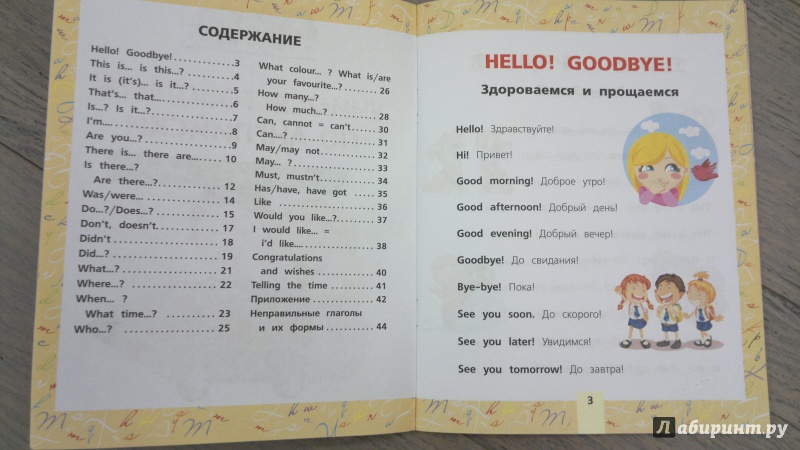 СОДЕРЖАНИЕ
Hello! Goodbye!.............3
This is... is this...?...........4
It is (it's)... is it...?...........5
That's... that.................6
Is...? Is it...?.................7
I'm.........................8
Are you...?...................9
There is... there are.... 10
Is there...?
Are there...? .......... 12
Was/were... ............. 14
Do...?/Does...? .......... 15
Don't, doesn't............ 17
Didn't .................. 18
Did...? .................. 19
What...? ................. 21
Where...? ................ 22
When... ?
What time...? .......... 23
Who...? .................. 25
What colour... ? What is/are
your favourite...? ....... 26
How many...?
How much...? ......... 28
Can, cannot = can't...... 30
Can....? ................. 31
May/may not............ 32
May... ? ................. 33
Must, mustn't............ 34
Has/have, have got ..... 35
Like .................... 36
Would you like...?........ 37
I would like... =
i'd like.... ............ 38
Congratulations
and wishes ............ 40
Telling the time .......... 41
Приложение ............. 42
Неправильные глаголы
и их формы ........... 44
HELLO! GOODBYE!
Здороваемся и прощаемся
Hello! Здравствуйте!
Hi! Привет!
Good morning! Доброе утро!
Good afternoon! Добрый день!
Good evening! Добрый вечер!
Goodbye! До свидания!
Bye-bye! Пока!
See you soon. До скорого!
See you later! Увидимся!
See you tomorrow! До завтра!
3
Лабиринт.ру